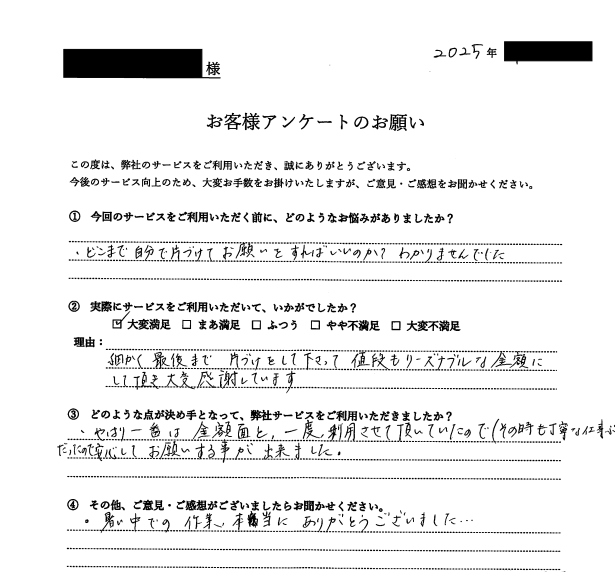 2025年
様
お客様アンケートのお願い
この度は、弊社のサービスをご利用いただき、誠にありがとうございます。
今後のサービス向上のため、大変お手数をお掛けいたしますが、ご意見・ご感想をお聞かせください。
① 今回のサービスをご利用いただく前に、どのようなお悩みがありましたか？
・どこまで自分で片づけてお願いをすればいいのか？わかりませんでした
② 実際にサービスをご利用いただいて、いかがでしたか？
☑ 大変満足 □ まあ満足 □ ふつう □ やや不満足 □ 大変不満足
理由：
細かく最後まで 片づけをして下さって 値段もリーズナブルな金額に
して頂き大変感謝しています
③ どのような点が決め手となって、弊社サービスをご利用いただきましたか？
・やはり一番は 金額面と、一度利用させて頂いていたので(その時も丁寧な仕事ぶり
だったので安心してお願いする事が出来ました。
④ その他、ご意見・ご感想がございましたらお聞かせください。
・暑い中での 作業、本当に ありがとうございました…